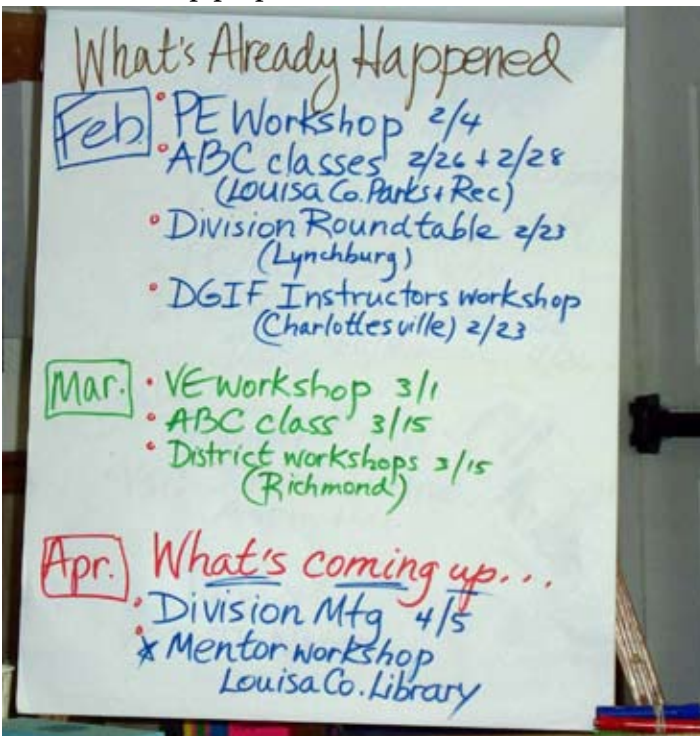 What's Already Happened
Feb. • PE Workshop 2/4
• ABC classes 2/26 + 2/28
(Louisa Co. Parks + Rec)
• Division Roundtable 2/23
(Lynchburg)
• DGIF Instructors workshop
(Charlottesville) 2/23
Mar. • VE workshop 3/1
• ABC class 3/15
• District workshops 3/15
(Richmond)
Apr. What's coming up...
• Division Mtg 4/5
* Mentor workshop
Louisa Co. Library